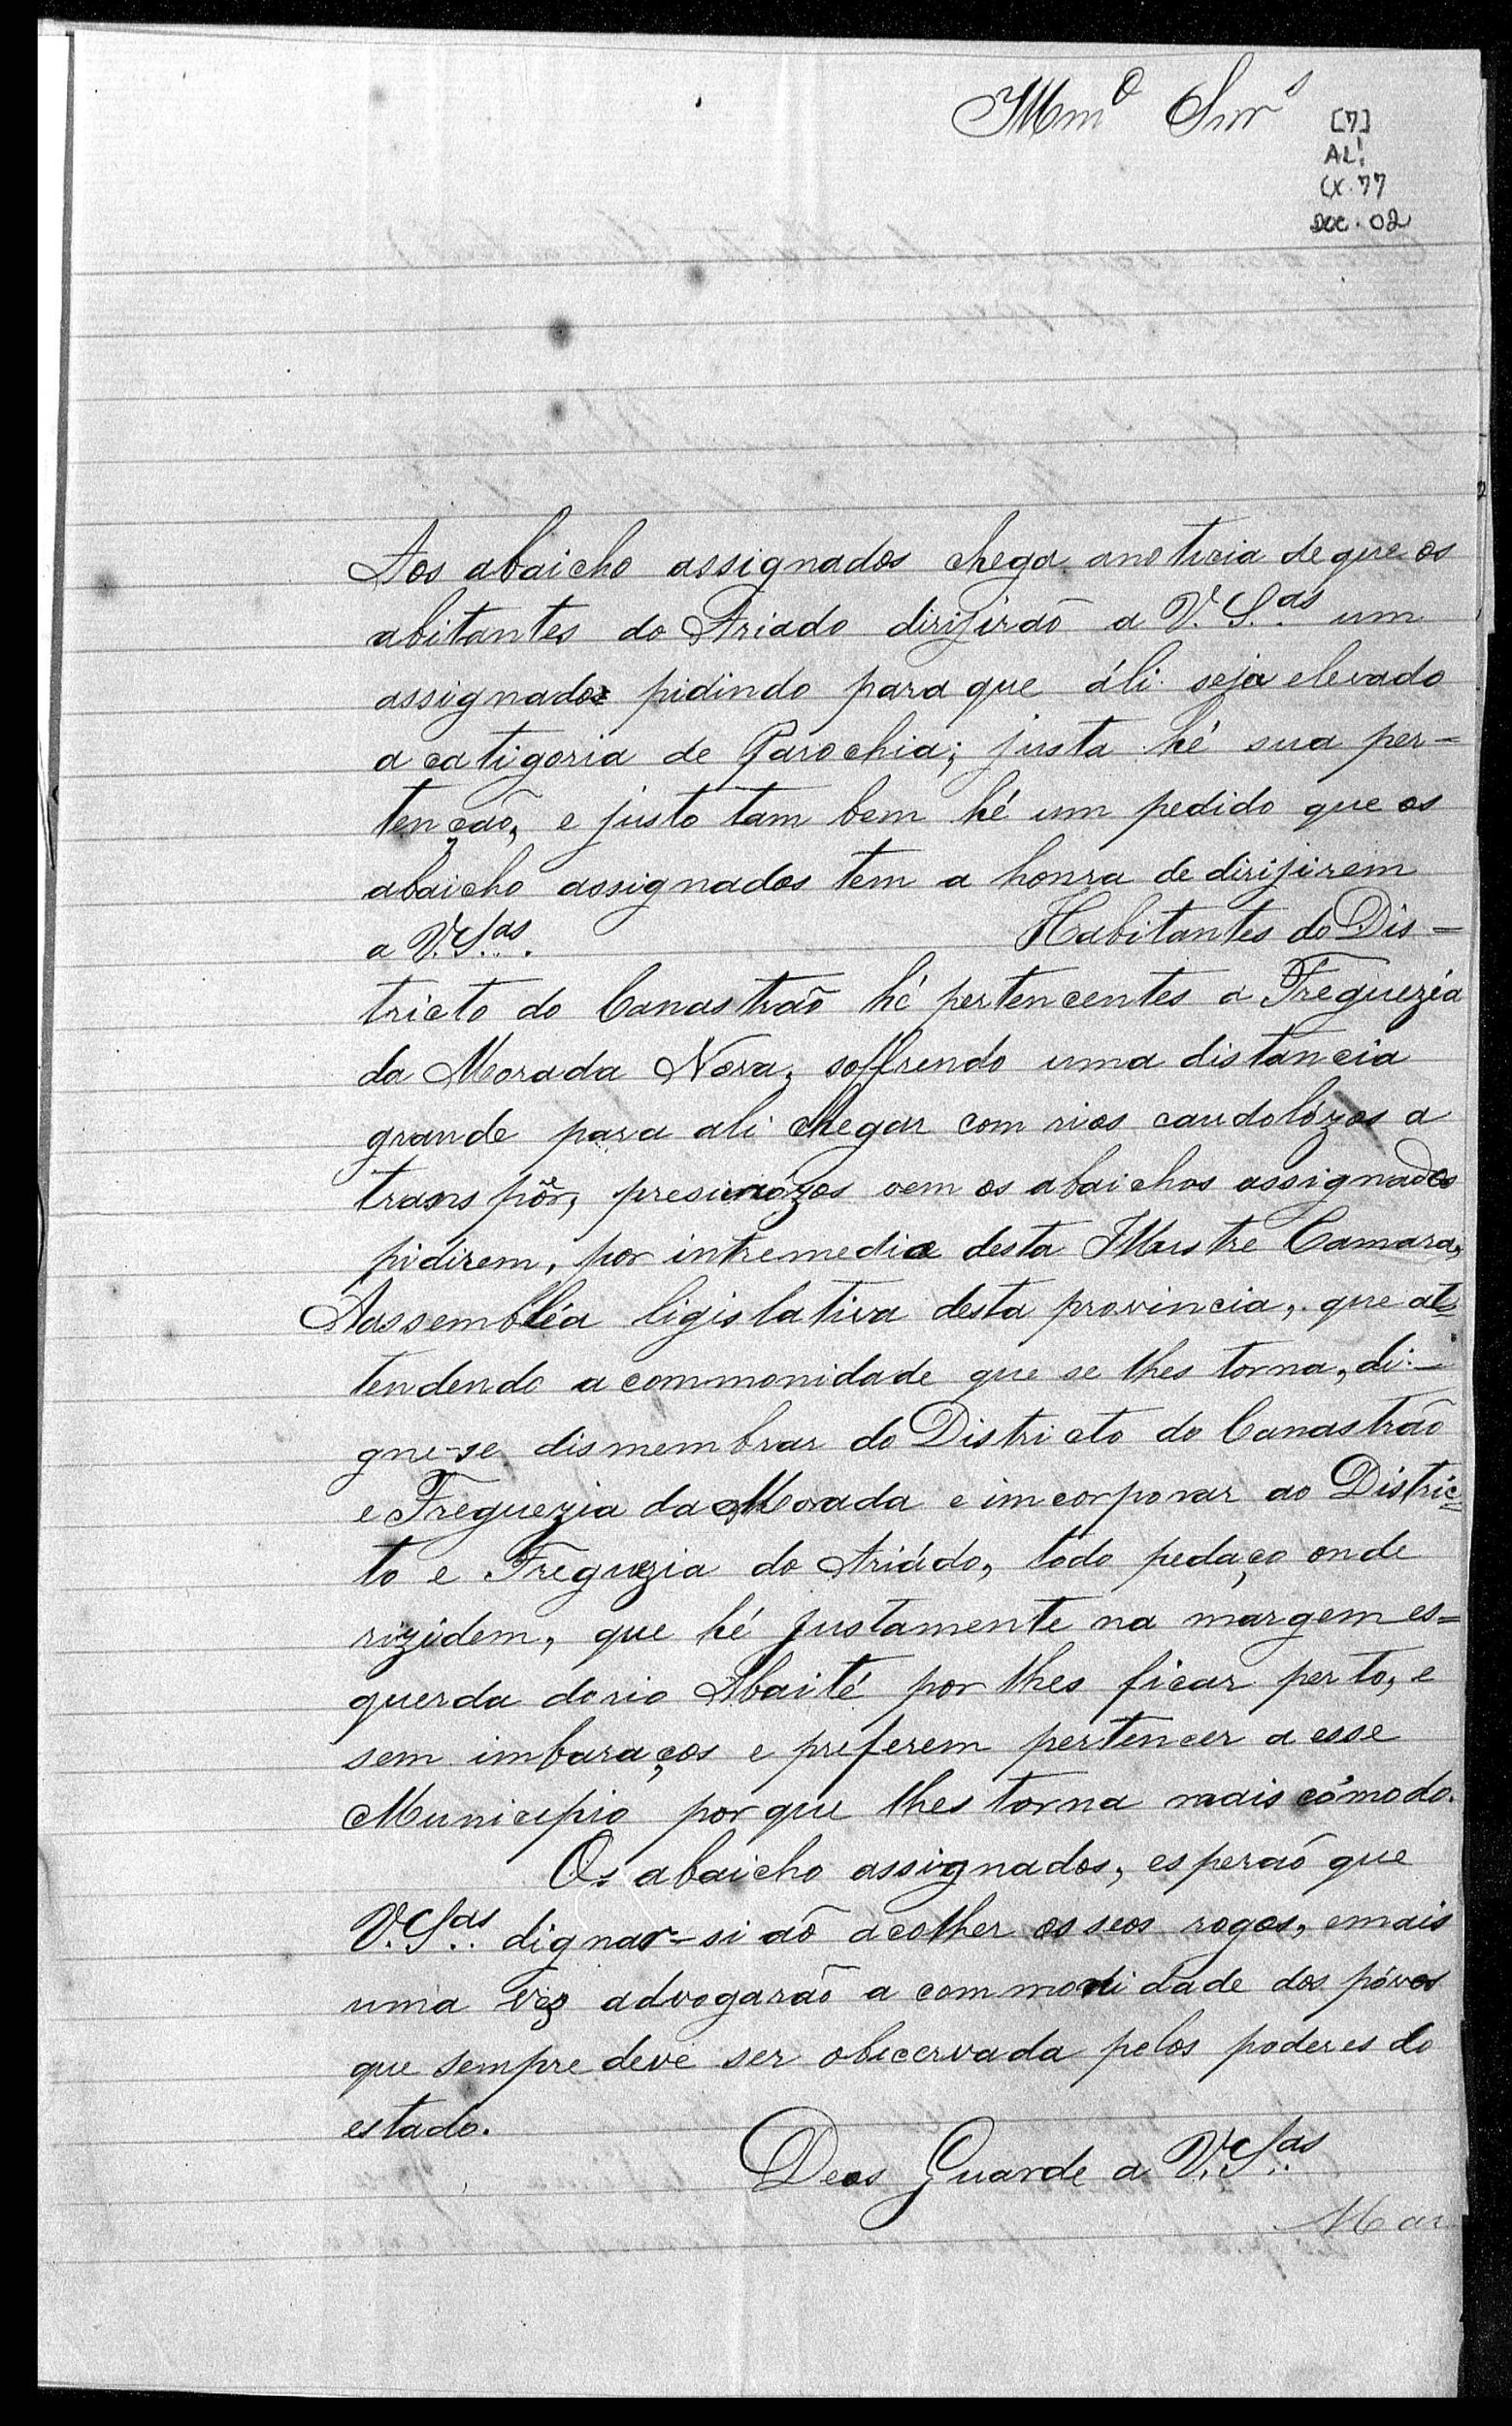 Illmº Snrˢ
[7]
AL!
CX. 77
Doc. 02
Aos abaicho assignados chega anoticia de que os
abitantes do Ariado dirijirão a V. S.ᵃˢ um
assignado pidindo para que áli seja elevado
a catigoria de Parochia; justa hé sua per=
tenção, e justo tam bem hé um pedido que os
abaicho assignados tem a honra de dirijirem
a V. S.ᵃˢ. Habitantes do Dis=
tricto do Canastrão hé pertencentes a Freguezia
da Morada Nova, soffrendo uma distancia
grande para ali chegar com rios caudolózos a
transpôr, vem os abaichos assignados
pidirem, por intremedio desta Illustre Camara,
Aassembléa ligislativa desta provincia, que at=
tendendo a commonidade que se lhes torna, di=
gne-se dismembrar do Districto do Canastrão
e Freguezia da Morada e imcorporar ao Distric=
to e Freguezia do Ariádo, todo pedaço onde
rizidem, que hé justamente na margem es=
querda do rio Abaité por lhes ficar perto, e
sem imbaraços e preferem pertencer a esse
Municipio por que lhes torna mais cómodo.
Os abaicho assignados, esperão que
V. S.ᵃˢ dignar-si ão acolher os seos rogos, emais
uma vez advogarão a commonidade dos póvos
que sempre deve ser obicervada pelos poderes do
estado.
Deos Guarde a V. S.ᵃˢ
Mar